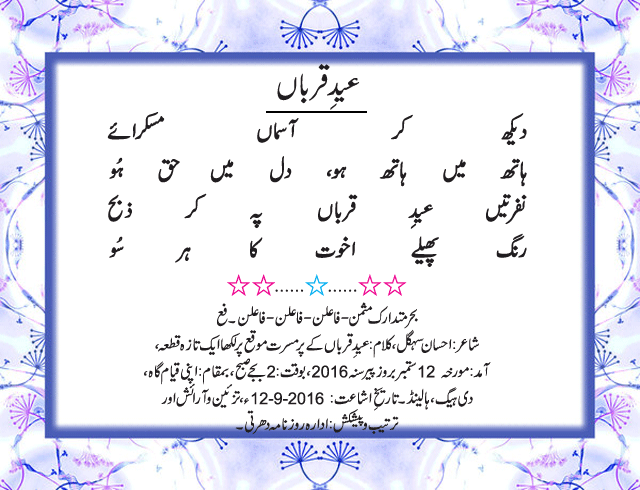 عیدِ قرباں
دیکھ کر آسماں مسکرائے
ہاتھ میں ہاتھ ہو، دل میں حق ہُو
نفرتیں عیدِ قرباں پہ کر ذبح
رنگ پھیلے اخوت کا ہر سُو
☆☆......☆......☆☆
بحر متدارک مثمن-فاعلن-فاعلن-فاعلن ۔ فع
شاعر: احسان سہگل، کلام: عیدِ قرباں کے پر مسرت موقع پر لکھا ایک تازہ قطعہ،
آمد: مورخہ 12 ستمبر بروز پیر سنہ 2016، بوقت: 2 بجے صبح، بمقام: اپنی قیام گاہ،
دی ہیگ، ہالینڈ۔ تاریخِ اشاعت: 2016-9-12ء، تزئین و آرائش اور
ترتیب و پیشکش: ادارہ روزنامہ دھرتی۔